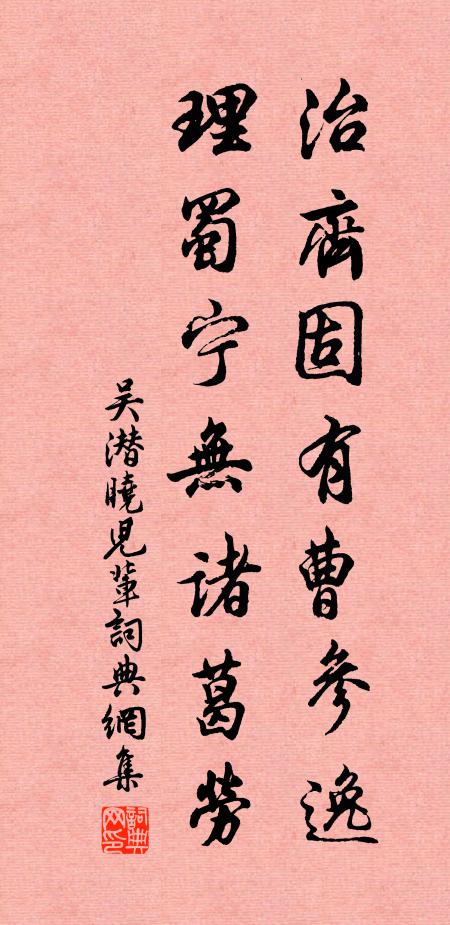 治齊固有曹參逸
理蜀宁無诸葛勞
吴潜曉児輩詞典網集
詞典网印